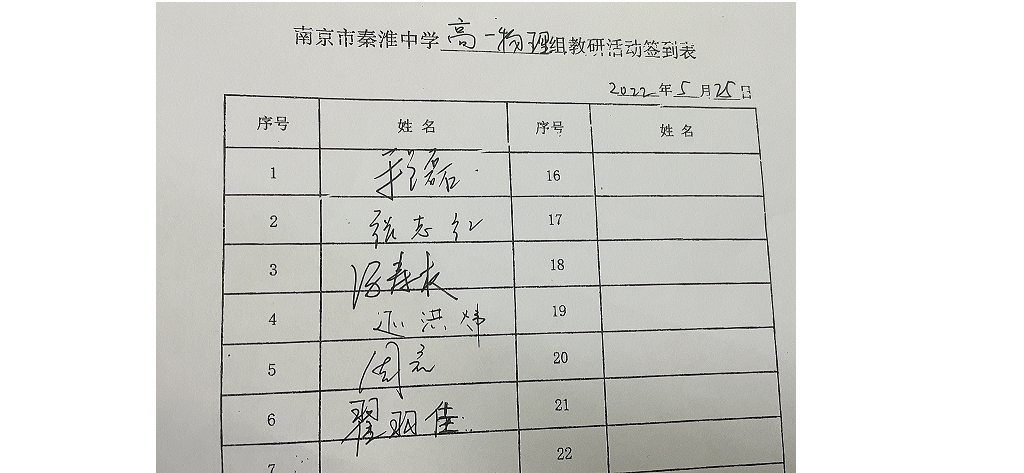 南京市秦淮中学高一物理组教研活动签到表
2022年5月25日
序号 姓名 序号 姓名
1 程磊 16
2 张志红 17
3 18
4 还洪炜 19
5 周亮 20
6 翟羽佳 21
7 22